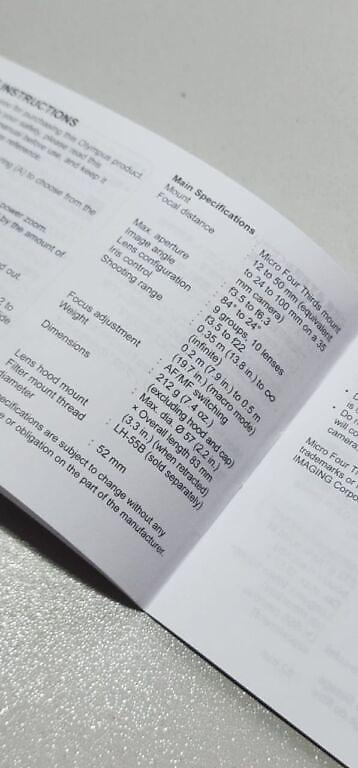 INSTRUCTIONS
for purchasing this Olympus product.
your safety, please read this
manual before use, and keep it
reference.
(A) to choose from the
power zoom.
by the amount of
out.
Main Specifications
Mount : Micro Four Thirds mount
Focal distance : 12 to 50 mm (equivalent
to 24 to 100 mm on a 35
mm camera)
Max. aperture : f3.5 to f6.3
Image angle : 84° to 24°
Lens configuration : 9 groups, 10 lenses
Iris control : f3.5 to f22
Shooting range : 0.35 m (13.8 in.) to ∞
(infinite)
0.2 m (7.9 in.) to 0.5 m
(19.7 in.) (macro mode)
Focus adjustment : AF/MF switching
Weight : 212 g (7.4 oz.)
(excluding hood and cap)
Dimensions : Max. dia. Ø 57 (2.2 in.)
× Overall length 83 mm
(3.3 in.) (when retracted)
Lens hood mount : LH-55B (sold separately)
Filter mount thread
diameter : 52 mm
specifications are subject to change without any
or obligation on the part of the manufacturer.
• D
is
• Do
will co
camera
Micro Four
trademarks or
IMAGING Corpo